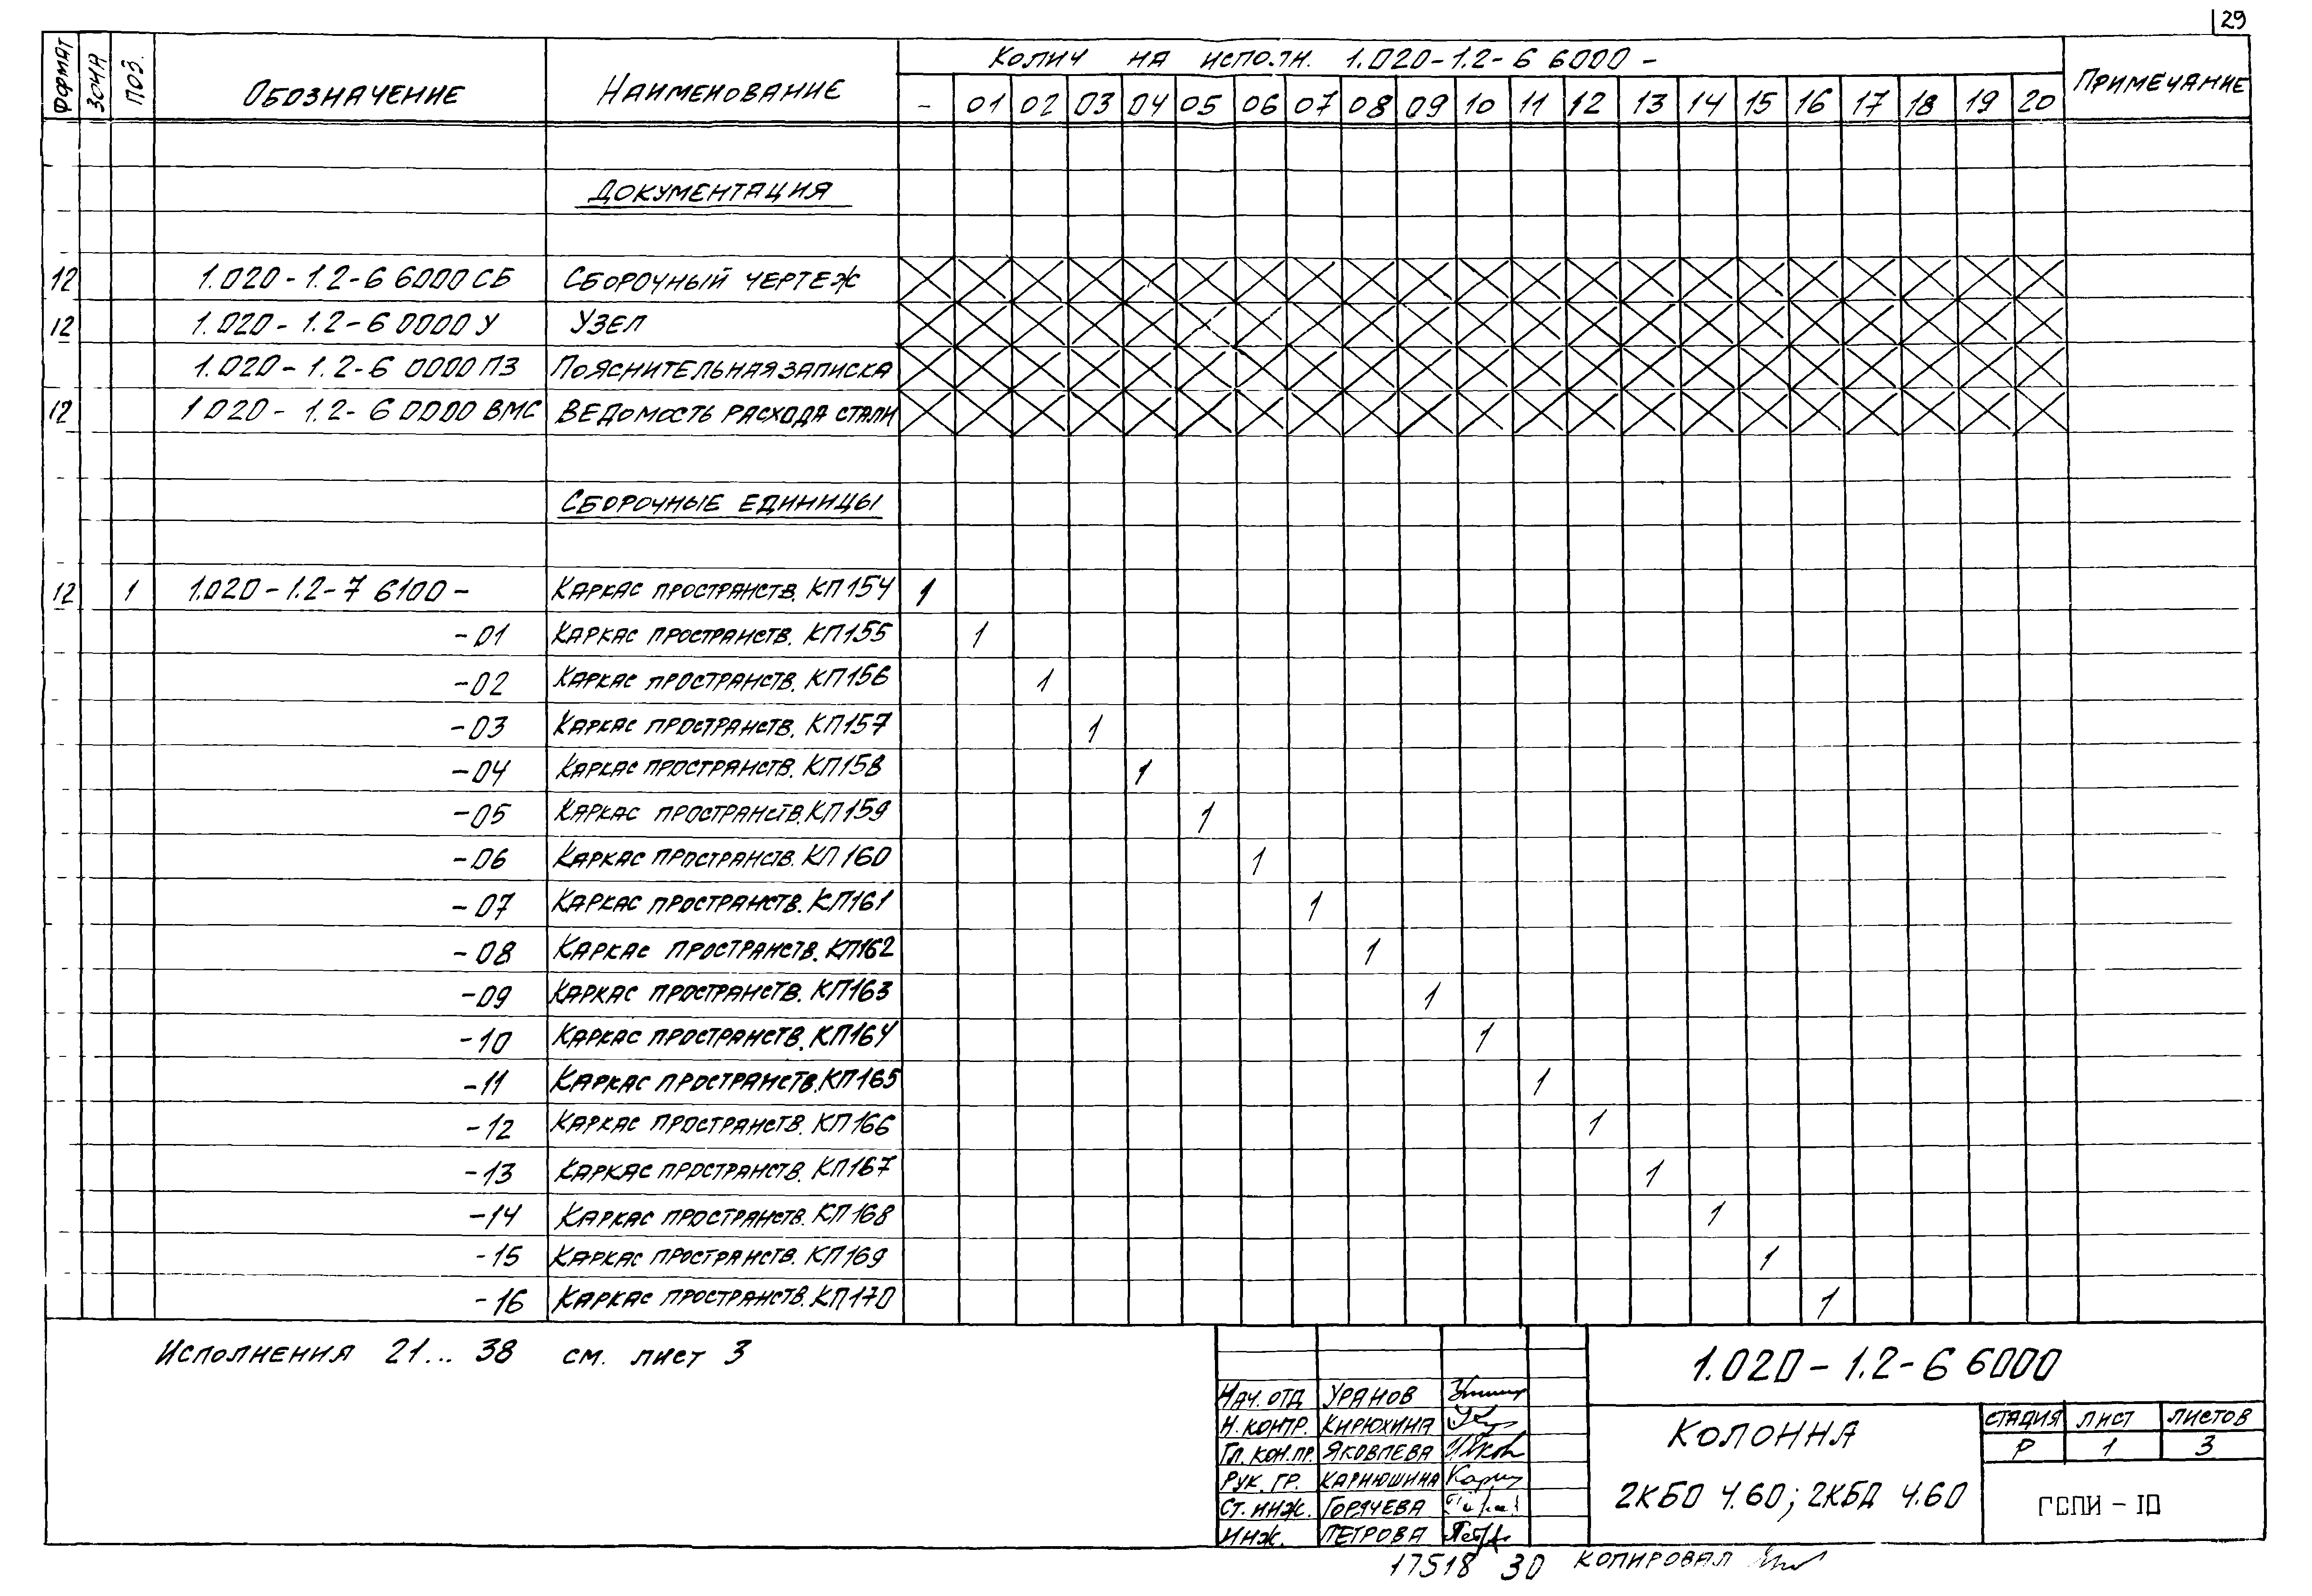 29
ФОРМАТ ЗОНА ПОЗ. ОБОЗНАЧЕНИЕ НАИМЕНОВАНИЕ КОЛИЧ НА ИСПОЛН. 1.020-1.2-6 6000 - ПРИМЕЧАНИЕ
- 01 02 03 04 05 06 07 08 09 10 11 12 13 14 15 16 17 18 19 20
ДОКУМЕНТАЦИЯ
12 1.020-1.2-6 6000 СБ СБОРОЧНЫЙ ЧЕРТЕЖ
12 1.020-1.2-6 0000 У УЗЕЛ
1.020-1.2-6 0000 ПЗ ПОЯСНИТЕЛЬНАЯ ЗАПИСКА
12 1 020-1.2-6 0000 ВМС ВЕДОМОСТЬ РАСХОДА СТАЛИ
СБОРОЧНЫЕ ЕДИНИЦЫ
12 1 1.020-1.2-7 6100 - КАРКАС ПРОСТРАНСТВ. КП154 1
-01 КАРКАС ПРОСТРАНСТВ. КП155 1
-02 КАРКАС ПРОСТРАНСТВ. КП156 1
-03 КАРКАС ПРОСТРАНСТВ. КП157 1
-04 КАРКАС ПРОСТРАНСТВ. КП158 1
-05 КАРКАС ПРОСТРАНСТВ. КП159 1
-06 КАРКАС ПРОСТРАНСТВ. КП160 1
-07 КАРКАС ПРОСТРАНСТВ. КП161 1
-08 КАРКАС ПРОСТРАНСТВ. КП162 1
-09 КАРКАС ПРОСТРАНСТВ. КП163 1
-10 КАРКАС ПРОСТРАНСТВ. КП164 1
-11 КАРКАС ПРОСТРАНСТВ. КП165 1
-12 КАРКАС ПРОСТРАНСТВ. КП166 1
-13 КАРКАС ПРОСТРАНСТВ. КП167 1
-14 КАРКАС ПРОСТРАНСТВ. КП168 1
-15 КАРКАС ПРОСТРАНСТВ. КП169 1
-16 КАРКАС ПРОСТРАНСТВ. КП170 1
ИСПОЛНЕНИЯ 21... 38 СМ. ЛИСТ 3
1.020-1.2-6 6000
НАЧ. ОТД УРАНОВ
Н. КОНТР. КИРЮХИНА
ГЛ. КОН.ПР. ЯКОВЛЕВА
РУК. ГР. КАРНЮШИНА
СТ. ИНЖ. ГОРЯЧЕВА
ИНЖ. ПЕТРОВА
КОЛОННА
2КБО 4.60; 2КБД 4.60
СТАДИЯ ЛИСТ ЛИСТОВ
Р 1 3
ГСПИ-10
17518 30 КОПИРОВАЛ